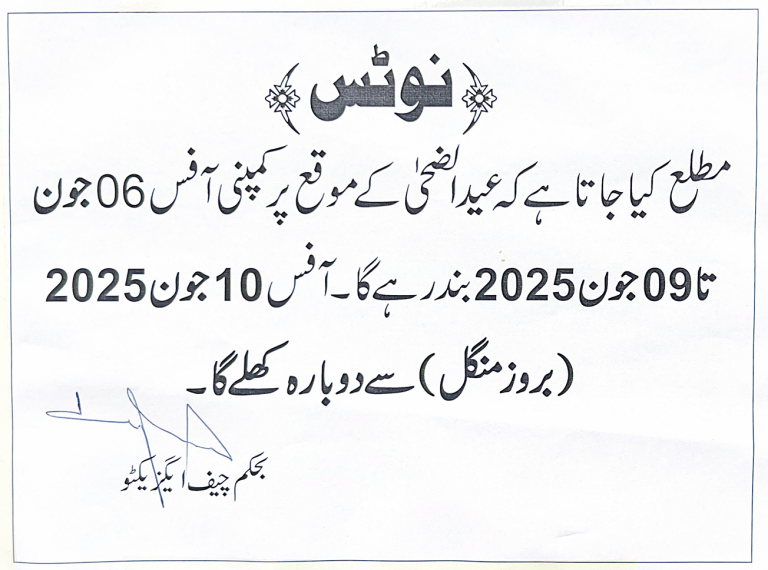 نوٹس
مطلع کیا جاتا ہے کہ عیدالضحیٰ کے موقع پر کمپنی آفس 06 جون
تا 09 جون 2025 بند رہے گا۔ آفس 10 جون 2025
(بروز منگل) سے دوبارہ کھلے گا۔
بحکم چیف ایگزیکٹو